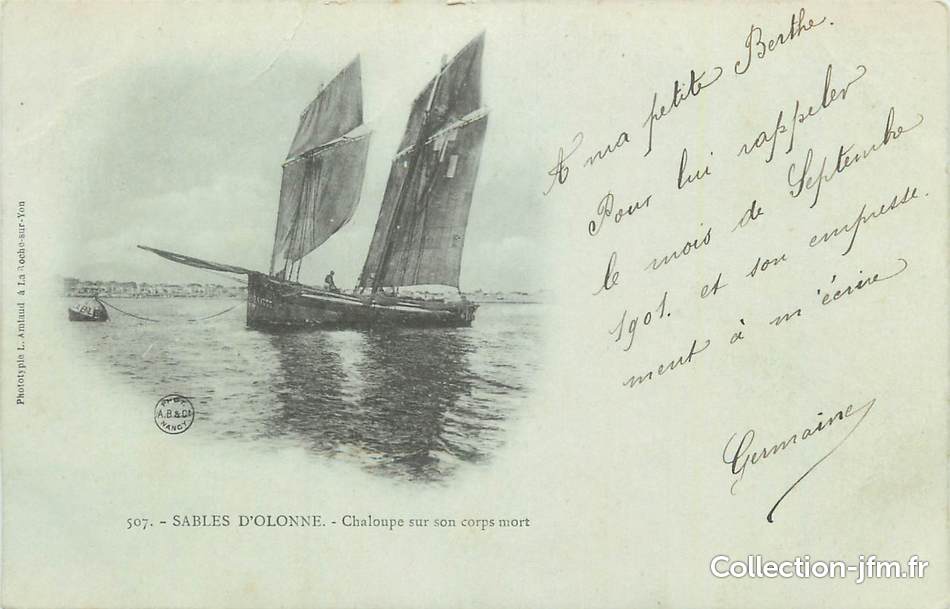 A ma petite Berthe.
Pour lui rappeler
le mois de Septembre
1901. et son empresse.
ment à m'écrire
Germaine
Phototypie L. Amiaud à La Roche-sur-Yon
PHOT.
A.B & Cie
NANCY
507. - SABLES D'OLONNE. - Chaloupe sur son corps mort
Collection-jfm.fr